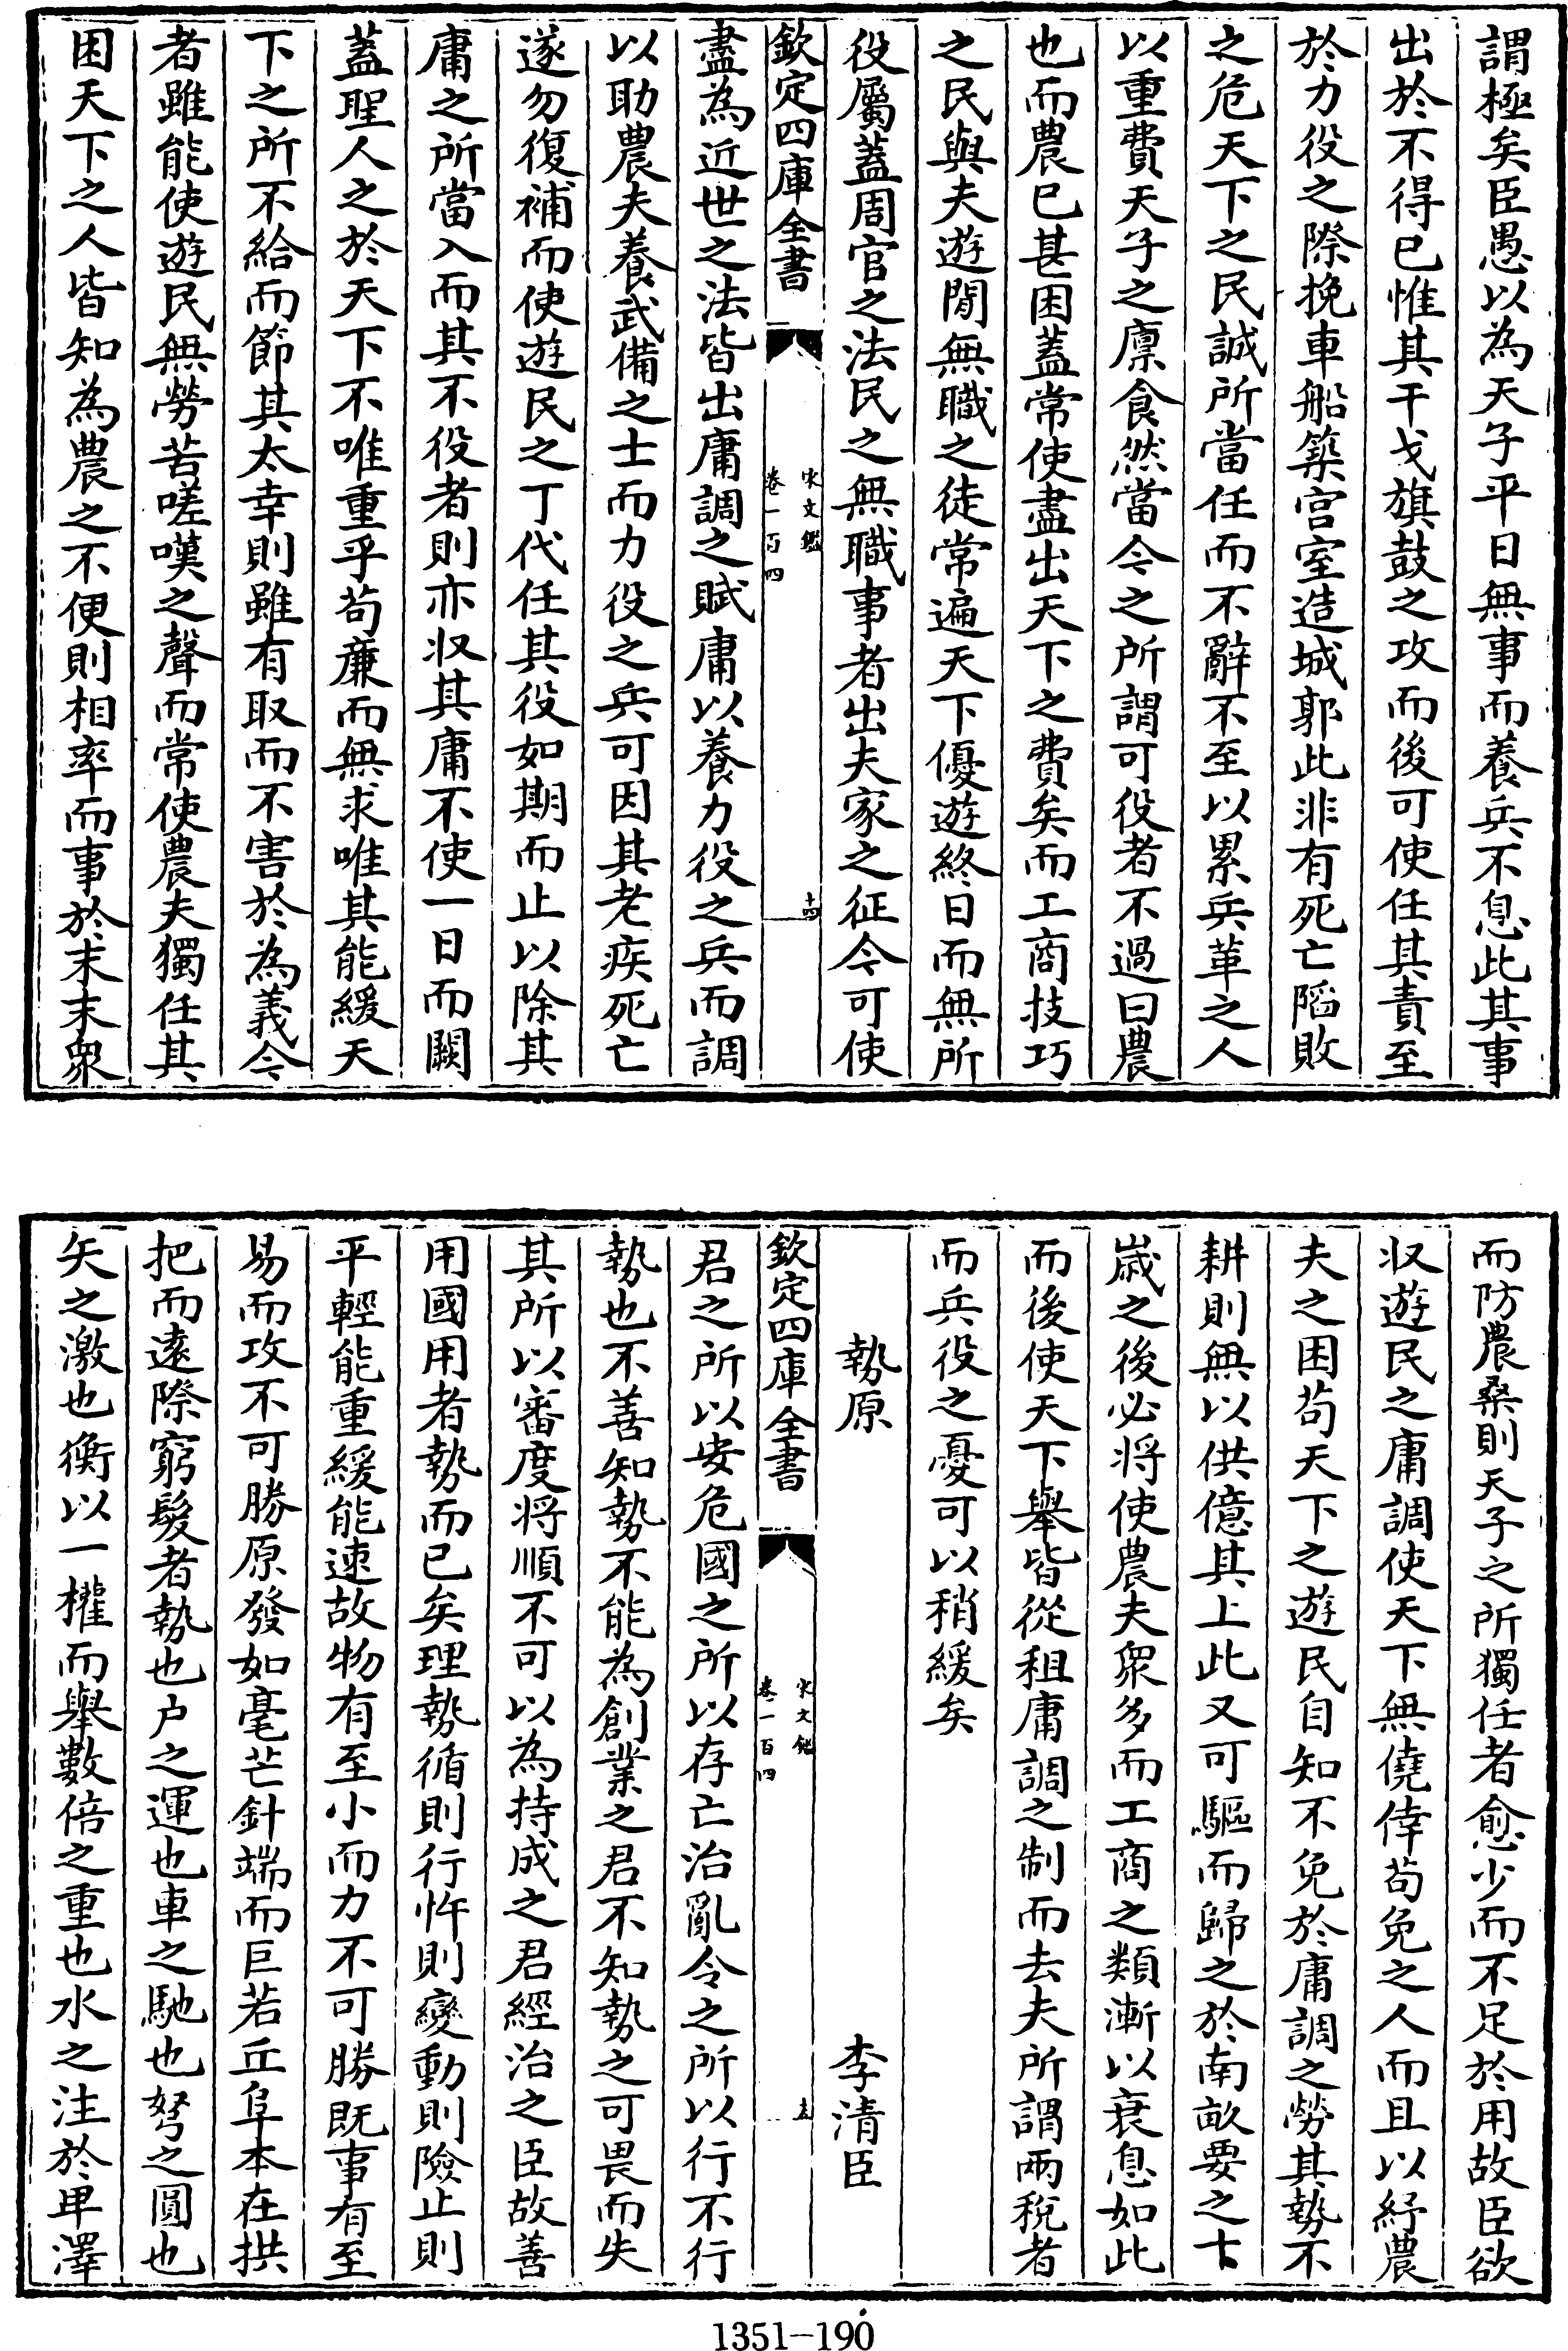 謂極矣臣愚以為天子平日無事而養兵不息此其事
出於不得已惟其干戈旗鼓之攻而後可使任其責至
於力役之際挽車船築宫室造城郭此非有死亡䧟敗
之危天下之民誠所當任而不辭不至以累兵革之人
以重費天子之廪食然當今之所謂可役者不過曰農
也而農已甚困蓋常使盡出天下之費矣而工商技巧
之民與夫遊閒無職之徒常遍天下優遊終日而無所
役屬蓋周官之法民之無職事者出夫家之征今可使
欽定四庫全書
宋文鑑
卷一百四
十四
盡為近世之法皆出庸調之賦庸以養力役之兵而調
以助農夫養武備之士而力役之兵可因其老疾死亡
遂勿復補而使遊民之丁代任其役如期而止以除其
庸之所當入而其不役者則亦収其庸不使一日而闕
蓋聖人之於天下不唯重乎苟廉而無求唯其能緩天
下之所不給而節其太幸則雖有取而不害於為義今
者雖能使遊民無勞苦嗟嘆之聲而常使農夫獨任其
困天下之人皆知為農之不便則相率而事於末末衆
而防農桑則天子之所獨任者愈少而不足於用故臣欲
収遊民之庸調使天下無僥倖苟免之人而且以紓農
夫之困苟天下之遊民自知不免於庸調之勞其勢不
耕則無以供億其上此又可驅而歸之於南畝要之十
歲之後必將使農夫衆多而工商之類漸以衰息如此
而後使天下舉皆從租庸調之制而去夫所謂兩稅者
而兵役之憂可以稍緩矣
勢原
李清臣
欽定四庫全書
宋文鑑
卷一百四
十五
君之所以安危國之所以存亡治亂令之所以行不行
勢也不善知勢不能為創業之君不知勢之可畏而失
其所以審度將順不可以為持成之君經治之臣故善
用國用者勢而已矣理勢循則行忤則變動則險止則
平輕能重緩能速故物有至小而力不可勝既事有至
易而攻不可勝原發如毫芒針端而巨若丘阜本在拱
把而遠際窮髮者勢也户之運也車之馳也弩之圓也
矢之激也衡以一權而舉數倍之重也水之注於卑澤
1351-190